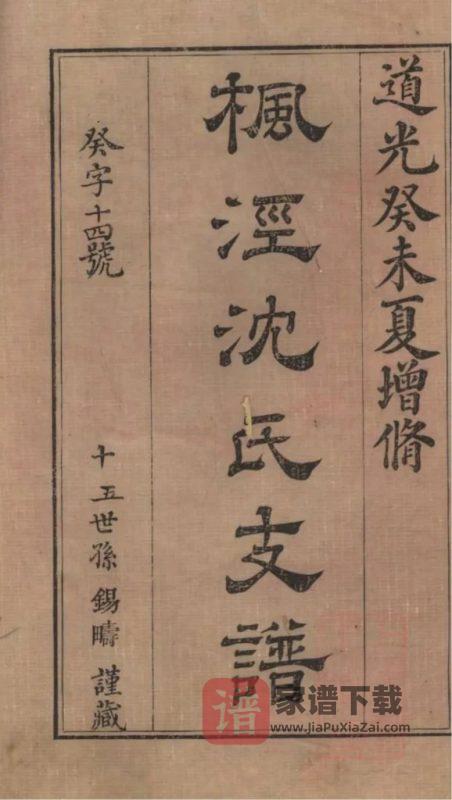 道光癸未夏增脩
楓涇沈氏支譜
癸字十四號
十五世孫錫疇謹藏
谱
家谱下载
www.JiaPuXiaZai.com